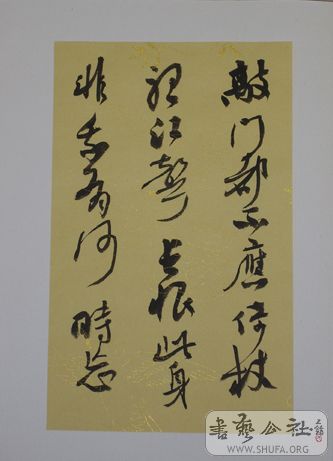 敲门都不應倚杖
聽江聲長恨此身
非我有何時忘
書藝公社
WWW.SHUFA.ORG